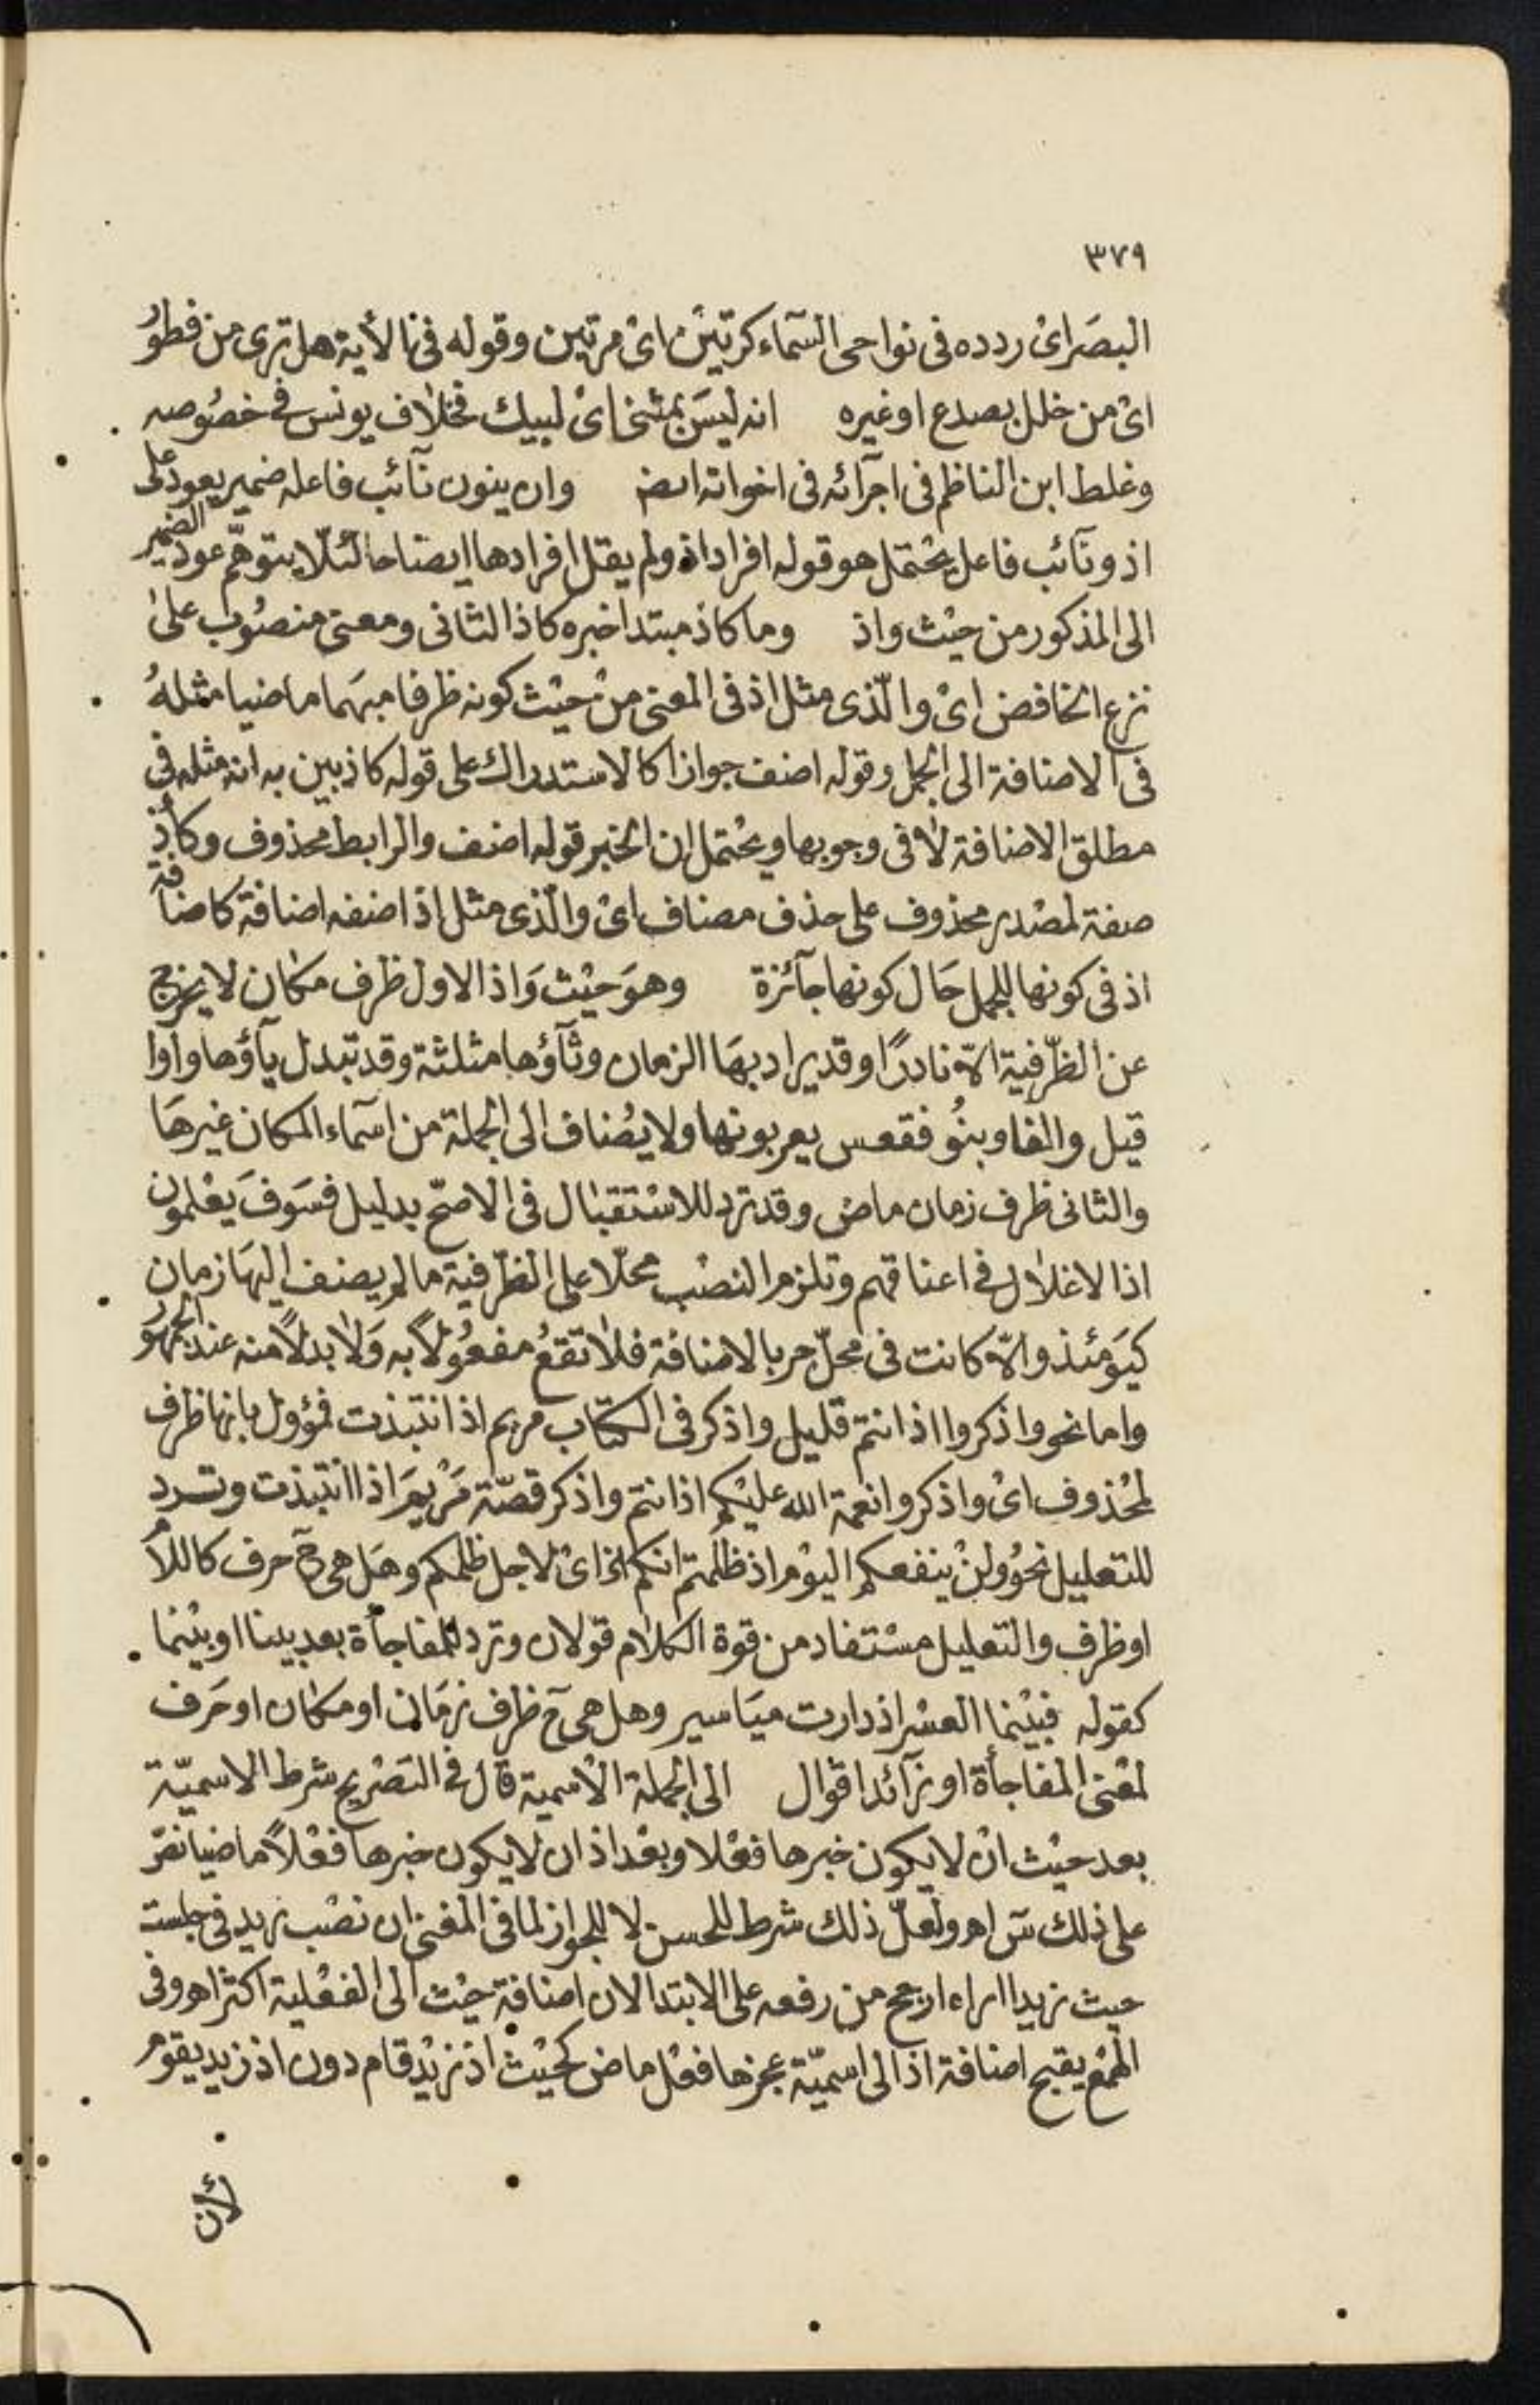 ٣٧٩
البصَر اىْ ردده فى نواحى السّمآء كرتيْن اىْ مرتين وقوله فى الأية هل ترى من فطوُر
اىْ من خلل بصدع اوغيره انه ليسَ بمثنى اىْ لبيك فخلاف يونس فى خصُوصه
وغلط ابن الناظم فى اجرآئه فى اخواته ايضا وان ينون نآئب فاعله ضمير يعود على
اذ ونآئب فاعل يحْتمل هو قوله افراد اذ ولم يقل افرادها ايضاحا لئلّا يتوهّم عود الضمير
الى المذكور من حيْث واذ وما كاذ مبتدا خبره كاذ الثانى ومعنى منصُوب علىٰ
نزع الخافض اىْ والّذى مثل اذ فى المعنى من حيْث كونه ظرفا مبهَما ماضيا مثلهُ
فى الاضافة الى الجمل وقوله اضف جوازا كالاستدراك على قوله كاذ بين به انه مثله فى
مطلق الاضافة لا فى وجوبها ويحْتمل ان الخبر قوله اضف والرابط محذوف وكأذِ
صفة لمصْدر محذوف على حذف مضاف اىْ والّذى مثل اذ اضفه اضافة كاضافة
اذ فى كونها للجمل حَال كونها جآئزة وهوَ حيْث وَاذ الاول ظرف مكان لا يخرج
عن الظّرفية الاّ نادرًا وقد يراد بهَا الزمان وثآؤها مثلثة وقد تبدل يآؤها واوا
قيل والفا وبنوُ فقعس يعربونها ولا يضُاف الى الجملة من اسمآء المكان غيرهَا
والثانى ظرف زمان ماض وقد ترد للاسْتقبال فى الاصحّ بدليل فسَوفَ يعْلمون
اذ الاغلال فى اعناقهم وتلزم النصْب محلّا على الظّرفية ما لم يضف اليهَا زمان
كيَومَئذ والاّ كانت فى محلّ جر بالاضافة فلا تقعُ مفعُولاً به وَلا بدلاً منه عند الجمهوُر
واما نحو واذكروا اذ انتم قليل واذكر فى الكتاب مريم اذ انتبذت فمؤول بانها ظرف
لمحْذوف اىْ واذكروا نعمة الله عليْكم اذ انتم واذكر قصّة مَرْيمَ اذ انتبذت وترد
للتعليل نحوُ ولنْ ينفعكم اليوْم اذ ظلمتم انكم اىْ لاجل ظلمكم وهَل هى ح حرف كاللام
اوظرف والتعليل مسْتفاد من قوة الكلام قوْلان وترد للمفاجأة بعد بينا اوبيْنما
كقوله فبيْنما العسْر اذ دارت ميَاسير وهل هى ح ظرف زمَان او مكان اوحَرف
لمعْنى المفاجأة او زآئد اقوال الى الجملة الاسمية قال فى التصْريح شرط الاسميّة
بعد حيْث انْ لا يكون خبرها فعْلا وبعْد اذ ان لا يكون خبرها فعْلاً ماضيا نصّ
على ذلك س اهـ ولعلّ ذلك شرط للحسن لا للجواز لما فى المغنى ان نصْب زيد فى جلست
حيث زيدا اراه ارجح من رفعه على الابتدا لان اضافة حيْث الى الفعْلية اكثر اهـ وفى
الهمْع يقبح اضافة اذ الى اسميّة عجزها فعْل ماض كحيْث اذ زيْد قام دون اذ زيد يقوُم
لأن